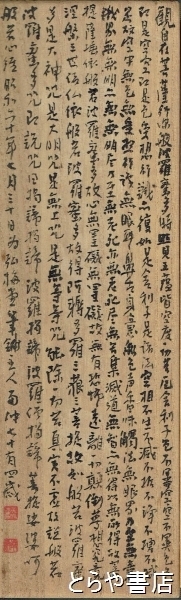 觀自在菩薩行深般若波羅蜜多時照見五蘊皆空度一切苦厄舍利子色不異空空不異色色即是
空空即是色受想行識亦復如是舍利子是諸法空相不生不滅不垢不淨不增不減
是故空中無色無受想行識無眼耳鼻舌身意無色聲香味觸法無眼界乃至無意
識界無無明亦無無明盡乃至無老死亦無老死盡無苦集滅道無智亦無得以無所得故菩
提薩埵依般若波羅蜜多故心無罣礙無罣礙故無有恐怖遠離一切顛倒夢想究竟
涅槃三世諸佛依般若波羅蜜多故得阿耨多羅三藐三菩提故知般若波羅蜜
多是大神咒是大明咒是無上咒是無等等咒能除一切苦真實不虛故說般若
波羅蜜多咒即說咒曰揭諦揭諦波羅揭諦波羅僧揭諦菩提娑婆訶
般若心經 昭和六十年七月三十日為 主人 七十有四歲
とらや書店